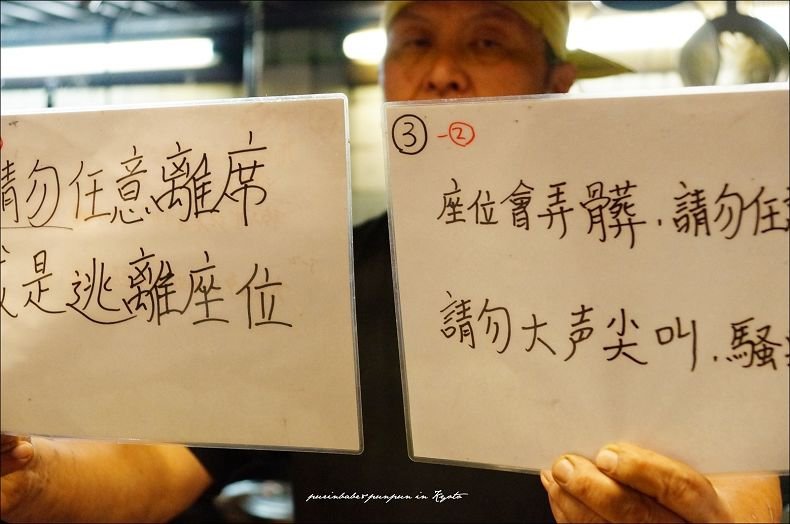 請勿任意離席
或是逃離座位
③-②
座位會弄髒，請勿任意
請勿大声尖叫，騷
purinbabe & punpun in Kyoto